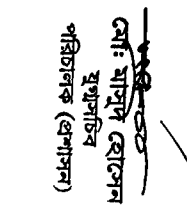 মোঃ মাসুদ হোসেন
যুগ্মসচিব
পরিচালক (প্রশাসন)